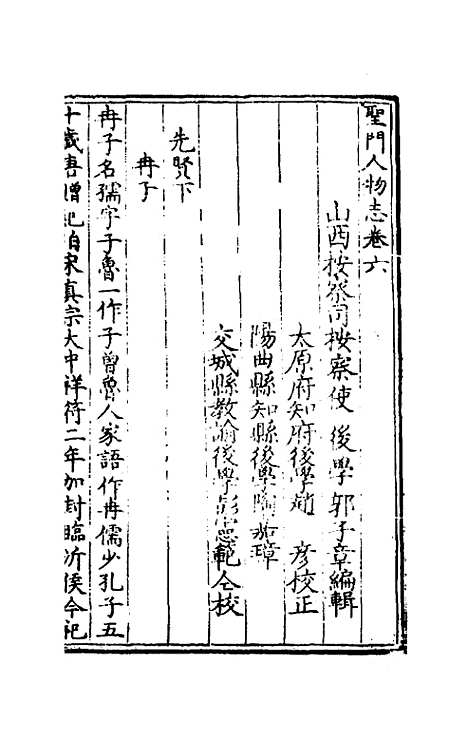 聖門人物志卷六
山西按察司按察使後學郭子章編輯
太原府知府後學趙彦校正
陽曲縣知縣後學陶嘉璋
交城縣教諭後學彭憲範仝校
先賢下
冉子
冉子名孺字子魯一作子曾魯人家語作冉儒少孔子五
十歲唐贈紀伯宋真宗大中祥符二年加封臨沂侯今祀